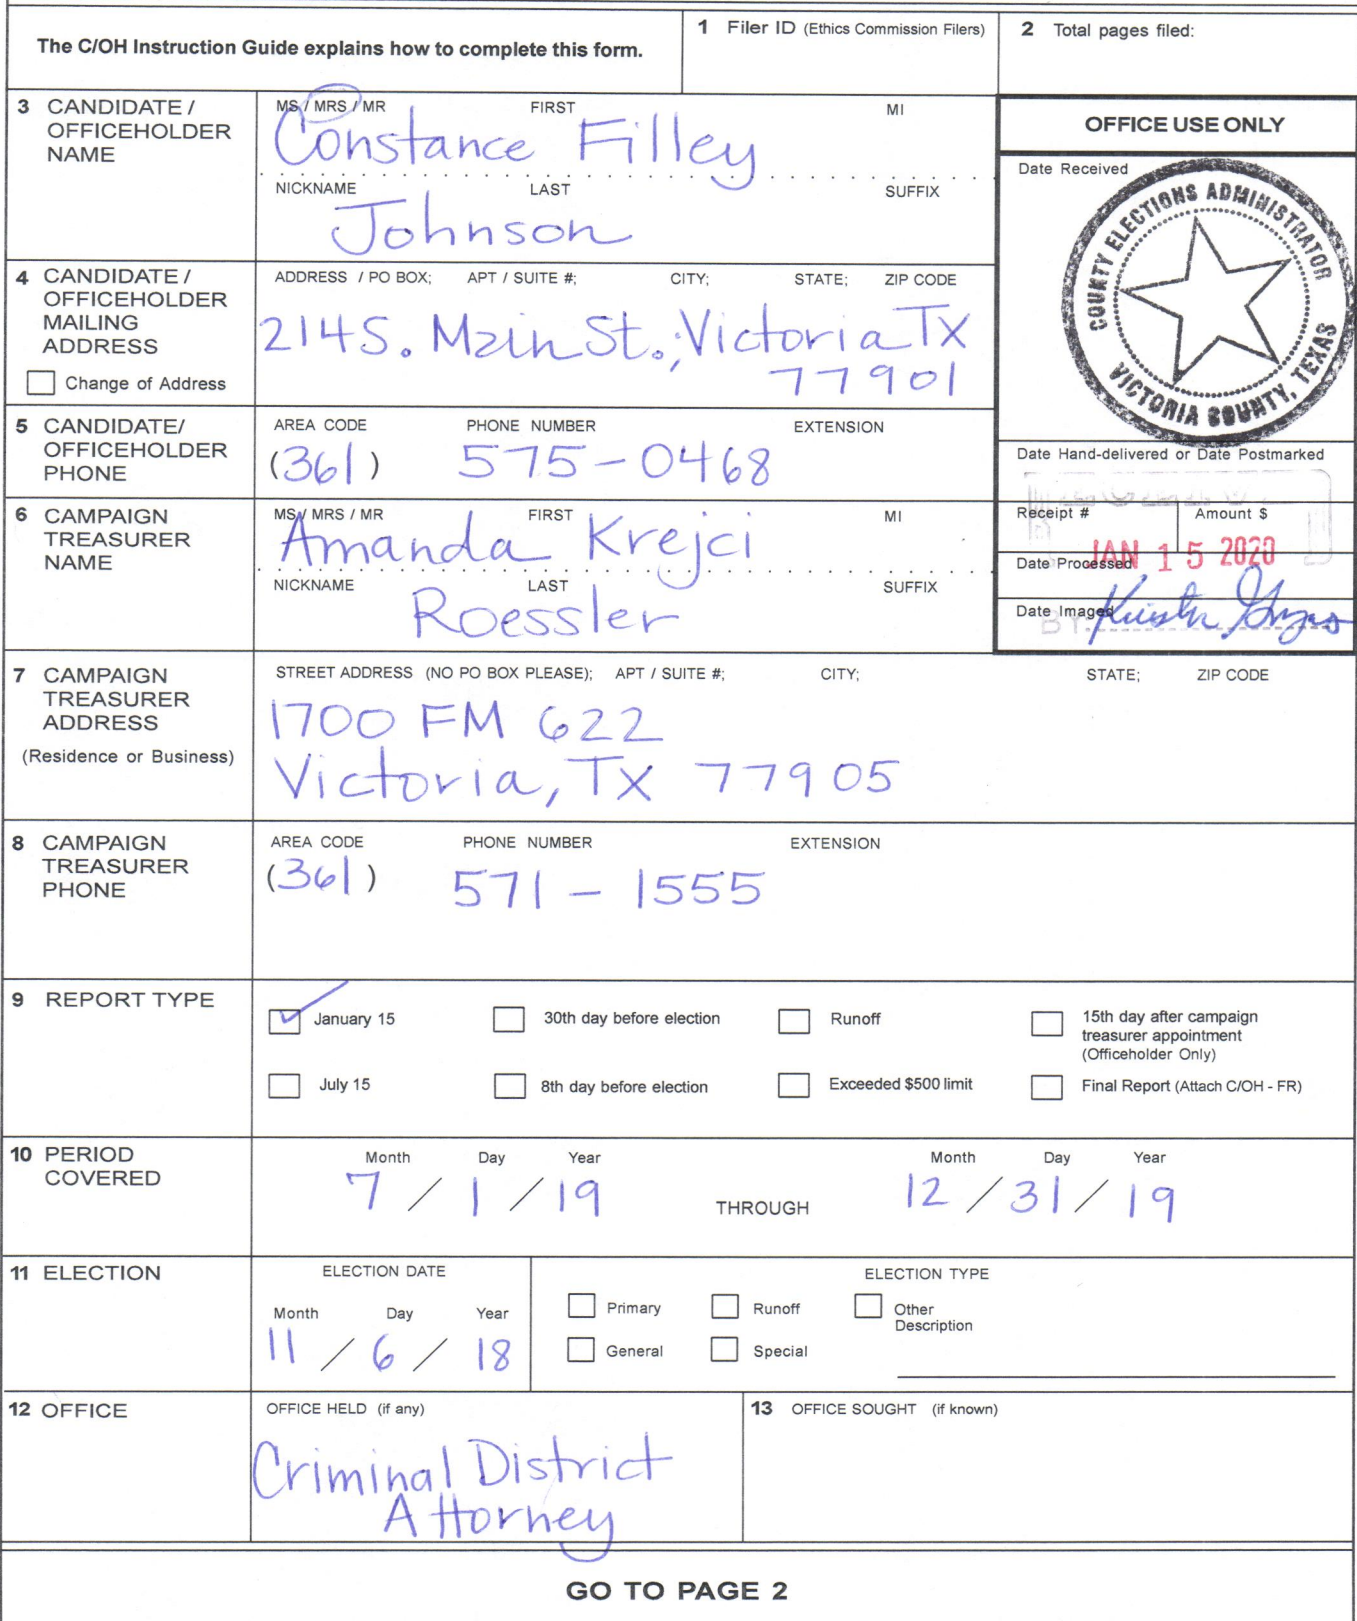 The C/OH Instruction Guide explains how to complete this form.
1 Filer ID (Ethics Commission Filers)
2 Total pages filed:
3 CANDIDATE / OFFICEHOLDER NAME
MS / MRS / MR FIRST MI
Constance Filley
NICKNAME LAST SUFFIX
Johnson
OFFICE USE ONLY
Date Received
COUNTY ELECTIONS ADMINISTRATOR
VICTORIA COUNTY, TEXAS
4 CANDIDATE / OFFICEHOLDER MAILING ADDRESS
Change of Address
ADDRESS / PO BOX; APT / SUITE #; CITY; STATE; ZIP CODE
214 S. Main St.; Victoria TX
77901
5 CANDIDATE/ OFFICEHOLDER PHONE
AREA CODE PHONE NUMBER EXTENSION
(361) 575-0468
Date Hand-delivered or Date Postmarked
Receipt # Amount $
JAN 15 2020
Date Processed
Date Imaged
BY:
6 CAMPAIGN TREASURER NAME
MS / MRS / MR FIRST MI
Amanda Krejci
NICKNAME LAST SUFFIX
Roessler
7 CAMPAIGN TREASURER ADDRESS
(Residence or Business)
STREET ADDRESS (NO PO BOX PLEASE); APT / SUITE #; CITY; STATE; ZIP CODE
1700 FM 622
Victoria, Tx 77905
8 CAMPAIGN TREASURER PHONE
AREA CODE PHONE NUMBER EXTENSION
(361) 571-1555
9 REPORT TYPE
January 15 30th day before election Runoff 15th day after campaign treasurer appointment (Officeholder Only)
July 15 8th day before election Exceeded $500 limit Final Report (Attach C/OH - FR)
10 PERIOD COVERED
Month Day Year Month Day Year
7 / 1 / 19 THROUGH 12 / 31 / 19
11 ELECTION
ELECTION DATE
Month Day Year
11 / 6 / 18
ELECTION TYPE
Primary Runoff Other Description
General Special
12 OFFICE
OFFICE HELD (if any)
Criminal District
Attorney
13 OFFICE SOUGHT (if known)
GO TO PAGE 2